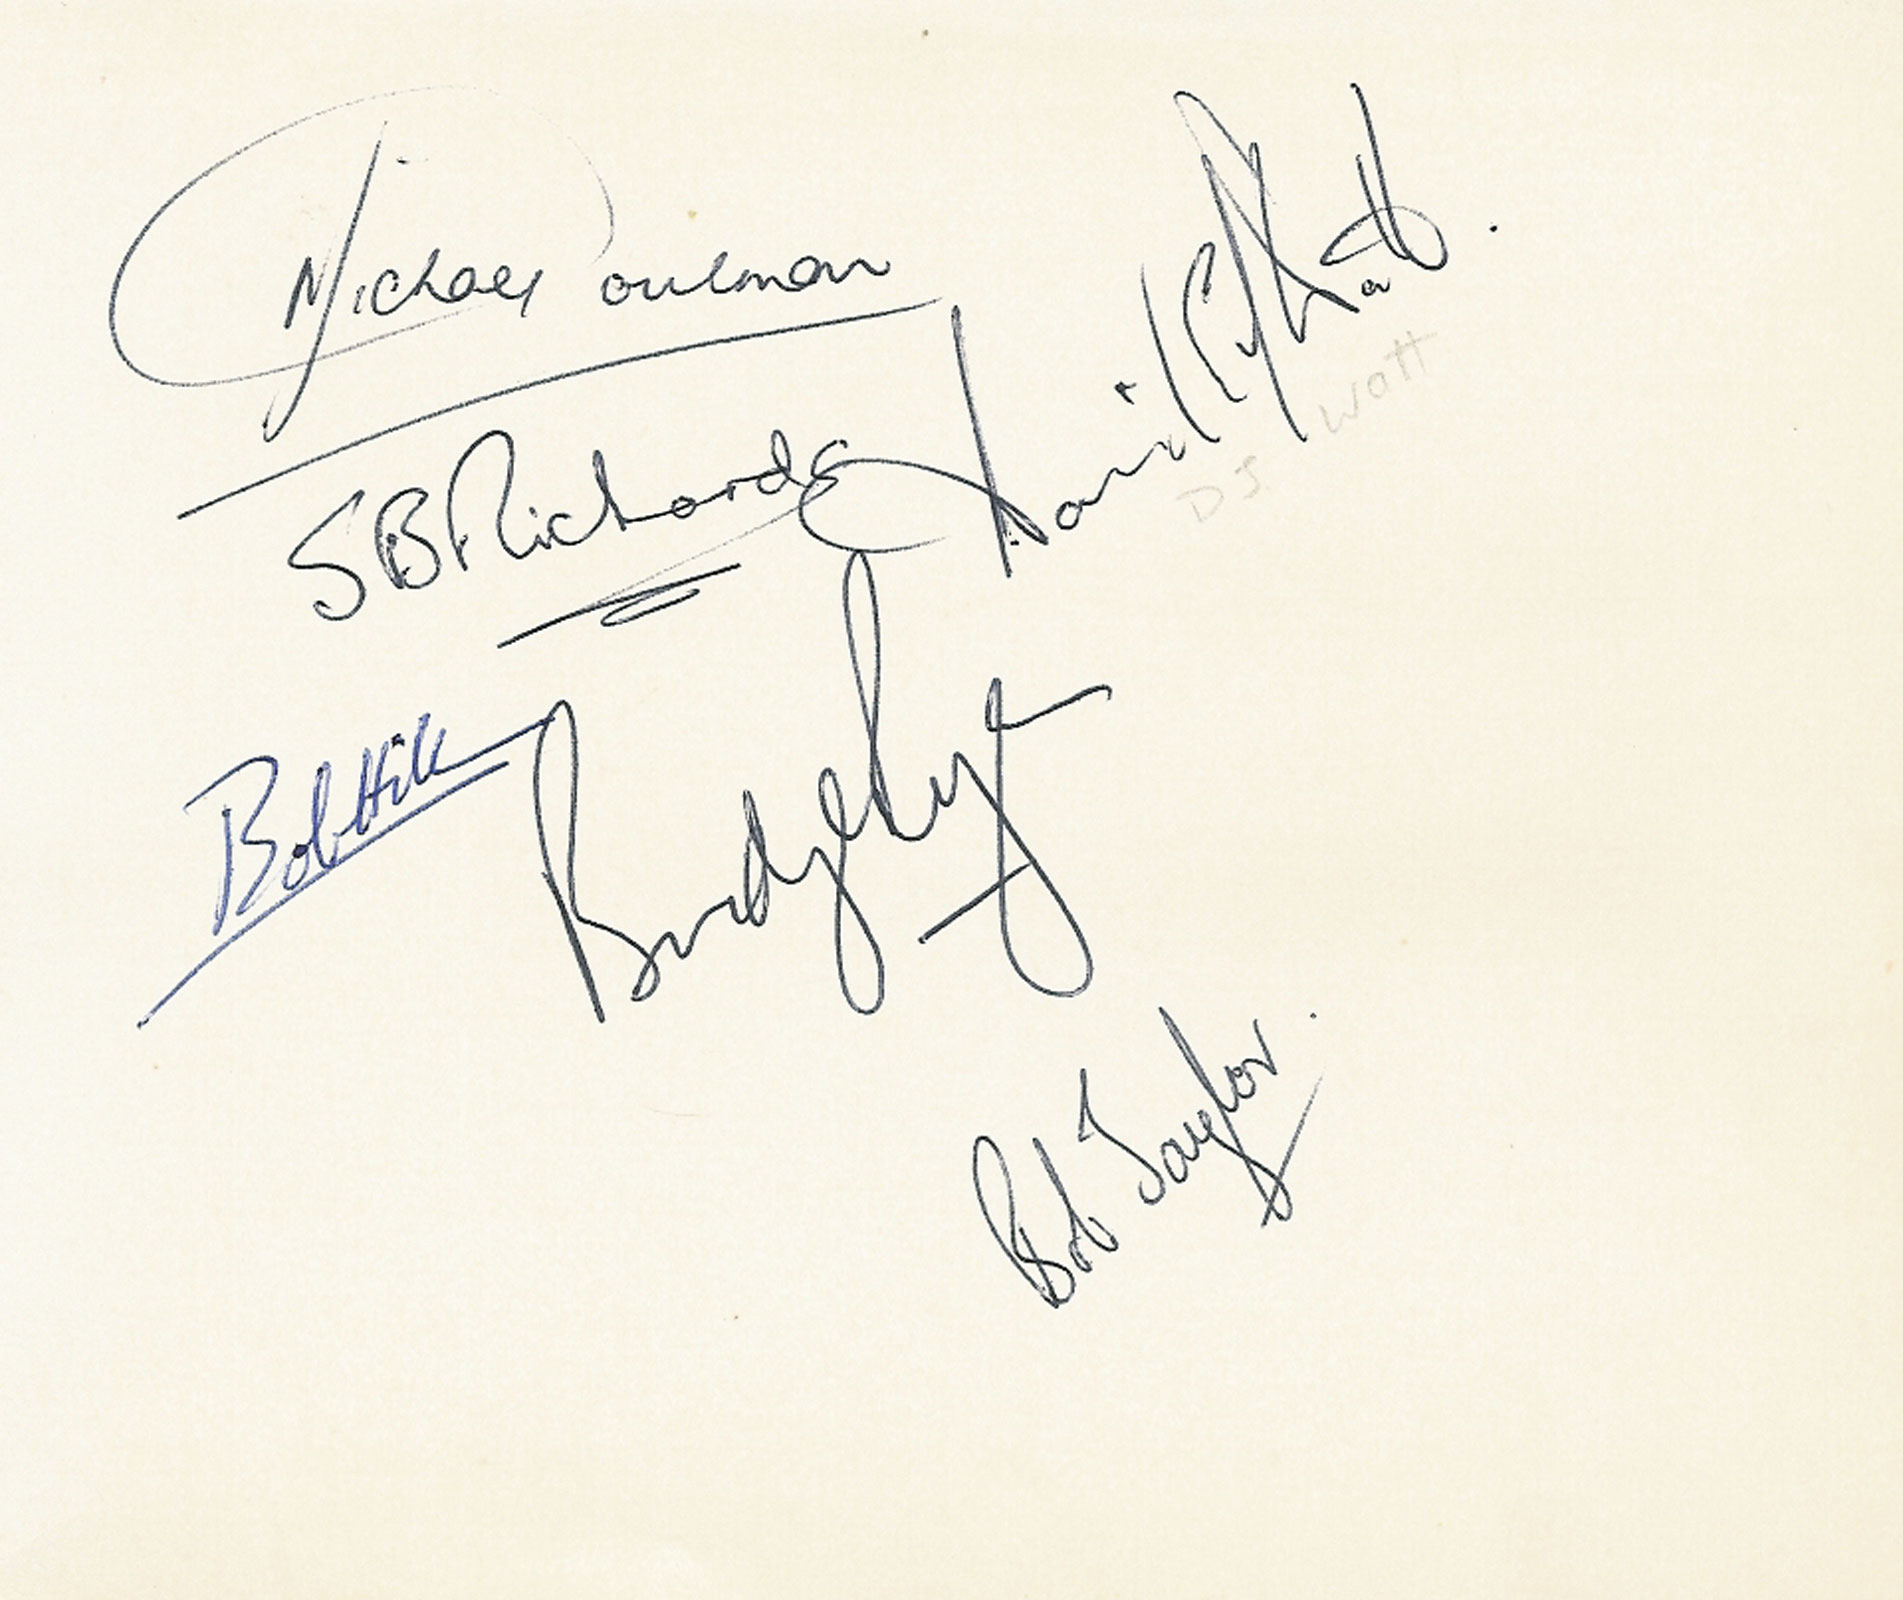 Michael Poulman
S B Richards
David
D J Watt
Bob Hill
Bob Taylor.